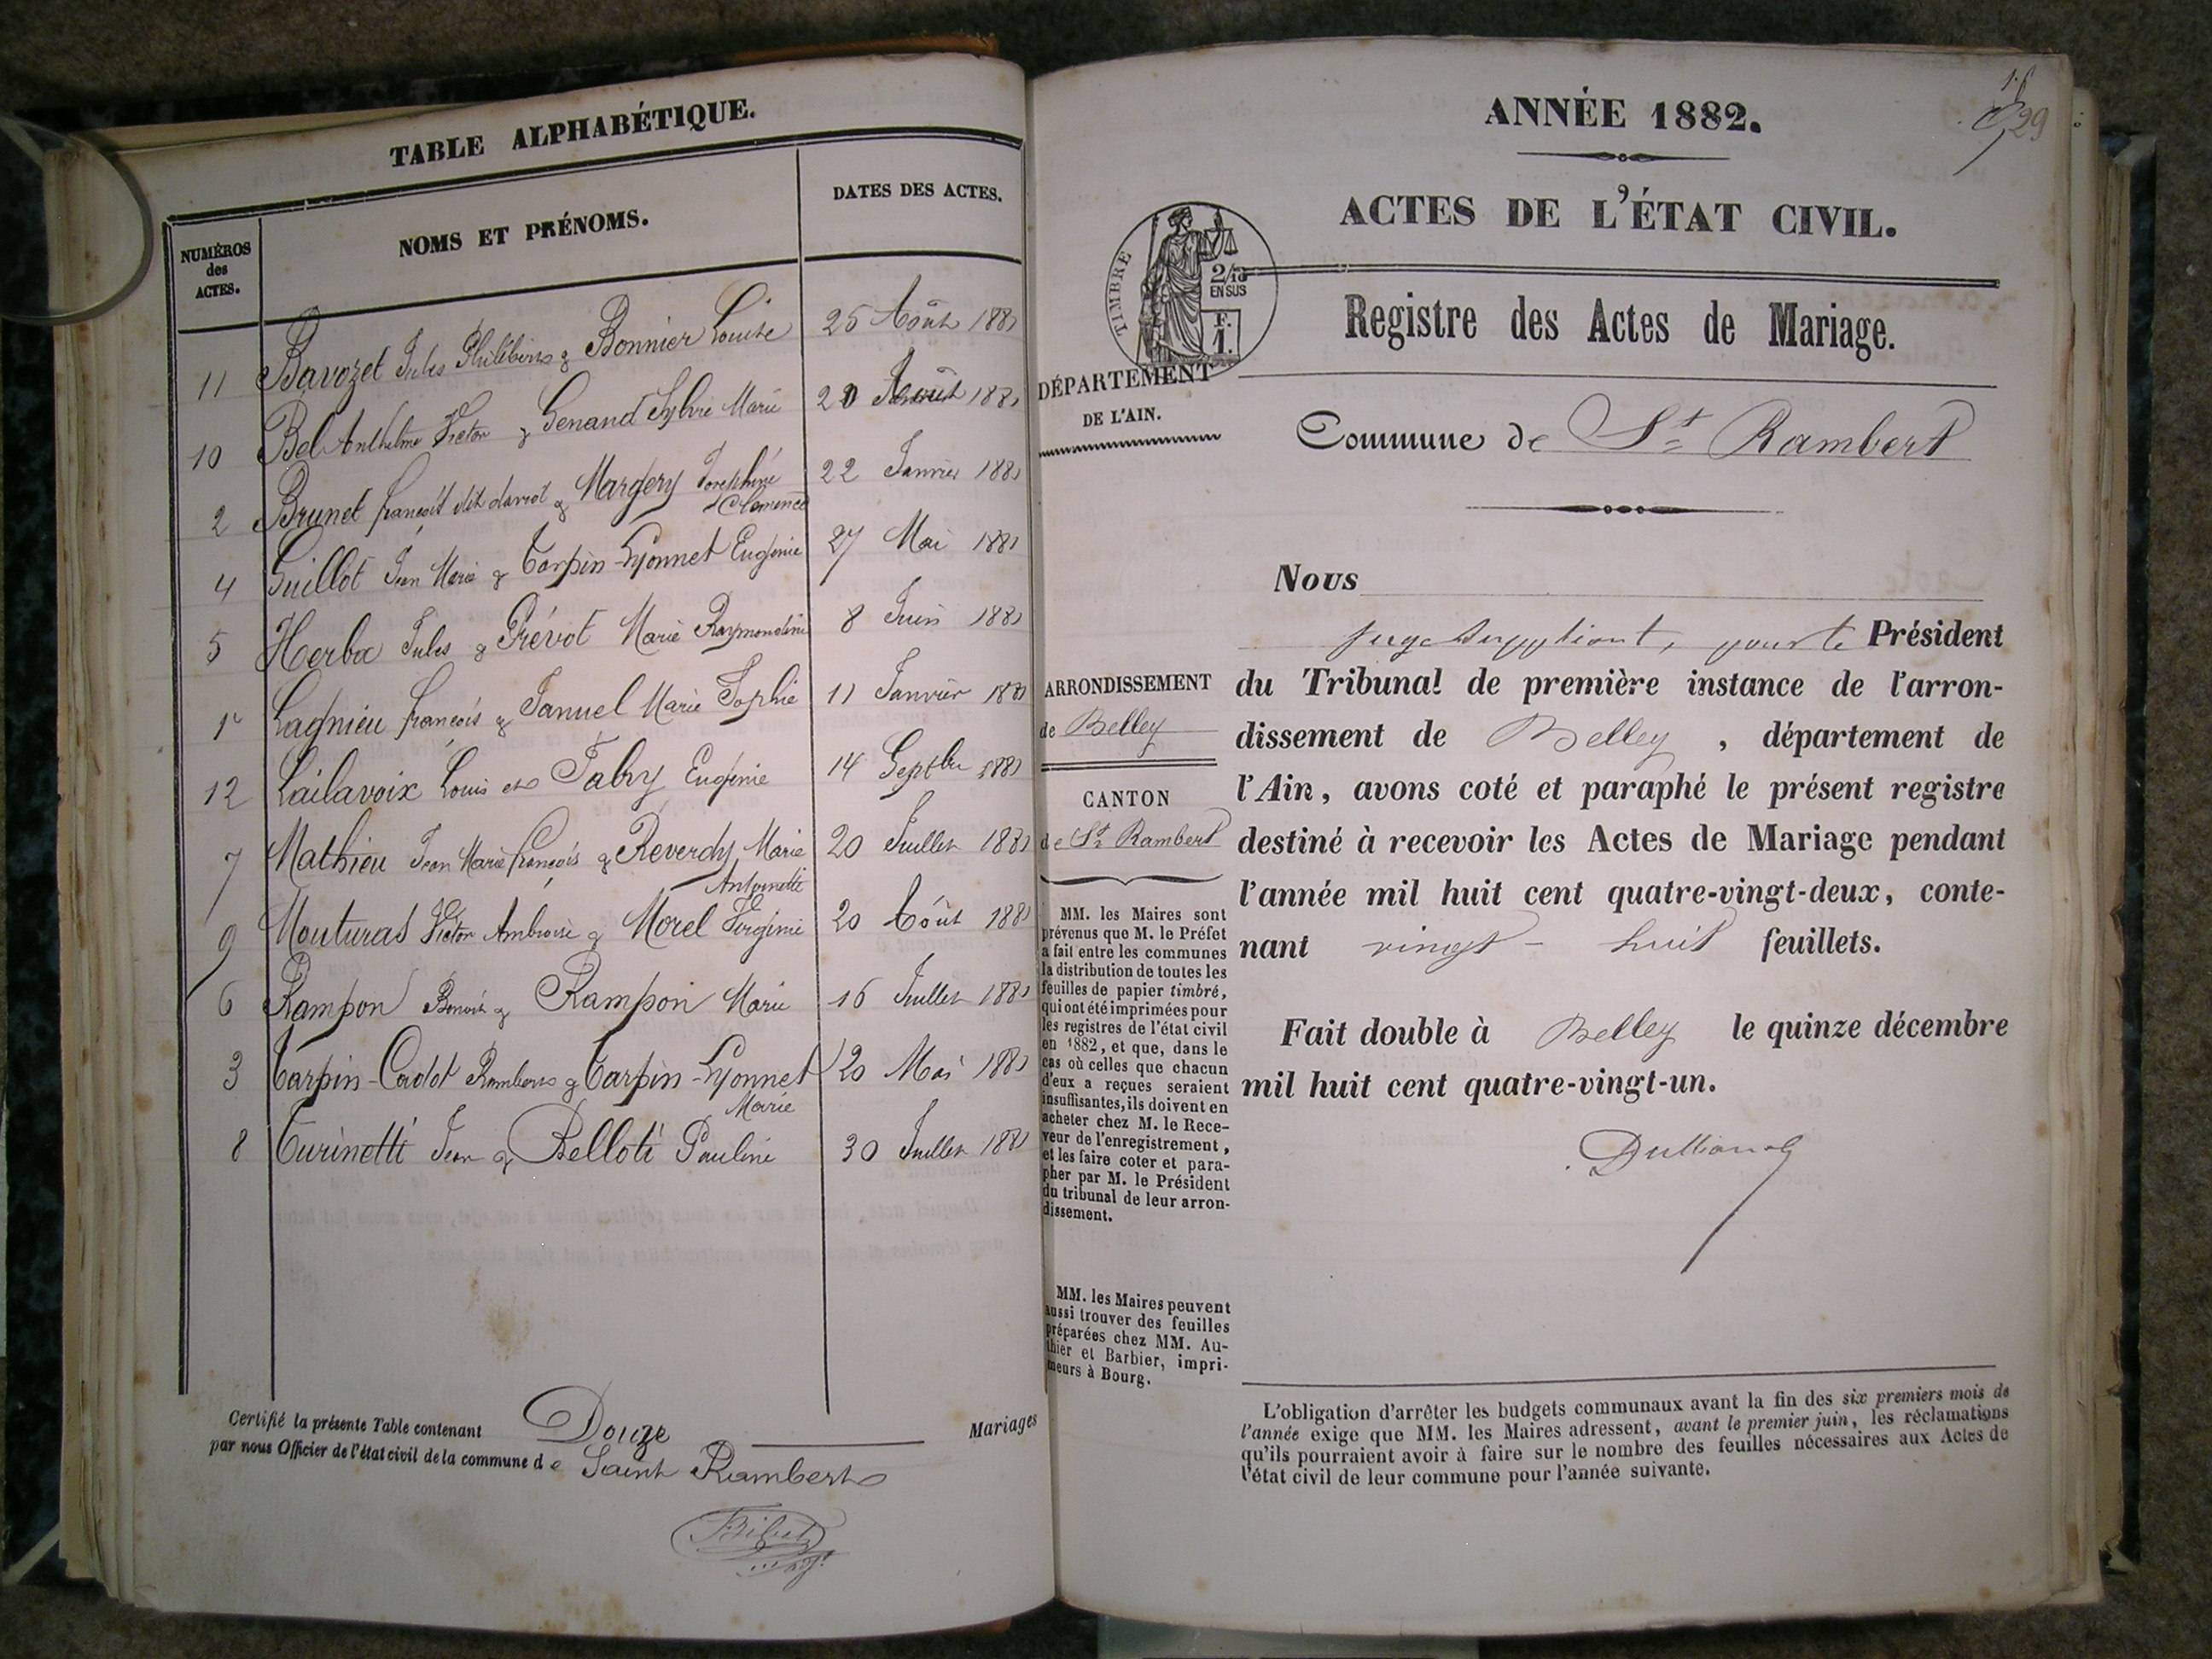 TABLE ALPHABÉTIQUE.
NUMÉROS
des
ACTES.
NOMS ET PRÉNOMS.
DATES DES ACTES.
11 Bavozet Jules Philibin & Bonnier Louise 25 Août 1881
10 Bel Anthelme Victor & Genand Sylvie Marie 20 Août 1881
2 Brunet françois dit david & Margery Joséphine Clémence 22 Janvier 1881
4 Guillot Jean Marie & Tarpin-Lyonnet Eugénie 27 Mai 1881
5 Herba Jules & Prévot Marie Raymondine 8 Juin 1881
1r Lagnieu françois & Januel Marie Sophie 11 Janvier 1881
12 Lailavoix Louis et Fabry Eugénie 14 Septbre 1881
7 Mathieu Jean Marie françois & Reverdy Marie Antoinette 20 Juillet 1881
9 Mouturas Victor Ambroise & Morel Virginie 20 Août 1881
6 Rampon Benoit & Rampon Marie 16 Juillet 1881
3 Tarpin-Cadot Rambert & Tarpin-Lyonnet Marie 20 Mai 1881
8 Turinetti Jean & Belloti Pauline 30 Juillet 1881
Certifié la présente Table contenant Douze Mariages
par nous Officier de l'état civil de la commune de Saint Rambert
29
ANNÉE 1882.
ACTES DE L'ÉTAT CIVIL.
TIMBRE
2/10
EN SUS
F.
1.
Registre des Actes de Mariage.
DÉPARTEMENT
DE L'AIN.
Commune de St Rambert
Nous
juge suppléant, pour le Président
du Tribunal de première instance de l'arron-
dissement de Belley, département de
l'Ain, avons coté et paraphé le présent registre
destiné à recevoir les Actes de Mariage pendant
l'année mil huit cent quatre-vingt-deux, conte-
nant vingt-huit feuillets.
Fait double à Belley le quinze décembre
mil huit cent quatre-vingt-un.
ARRONDISSEMENT
de Belley
CANTON
de St Rambert
MM. les Maires sont
prévenus que M. le Préfet
a fait entre les communes
la distribution de toutes les
feuilles de papier timbré,
qui ont été imprimées pour
les registres de l'état civil
en 1882, et que, dans le
cas où celles que chacun
d'eux a reçues seraient
insuffisantes, ils doivent en
acheter chez M. le Rece-
veur de l'enregistrement,
et les faire coter et para-
pher par M. le Président
du tribunal de leur arron-
dissement.
MM. les Maires peuvent
aussi trouver des feuilles
préparées chez MM. Au-
thier et Barbier, impri-
meurs à Bourg.
L'obligation d'arrêter les budgets communaux avant la fin des six premiers mois de
l'année exige que MM. les Maires adressent, avant le premier juin, les réclamations
qu'ils pourraient avoir à faire sur le nombre des feuilles nécessaires aux Actes de
l'état civil de leur commune pour l'année suivante.